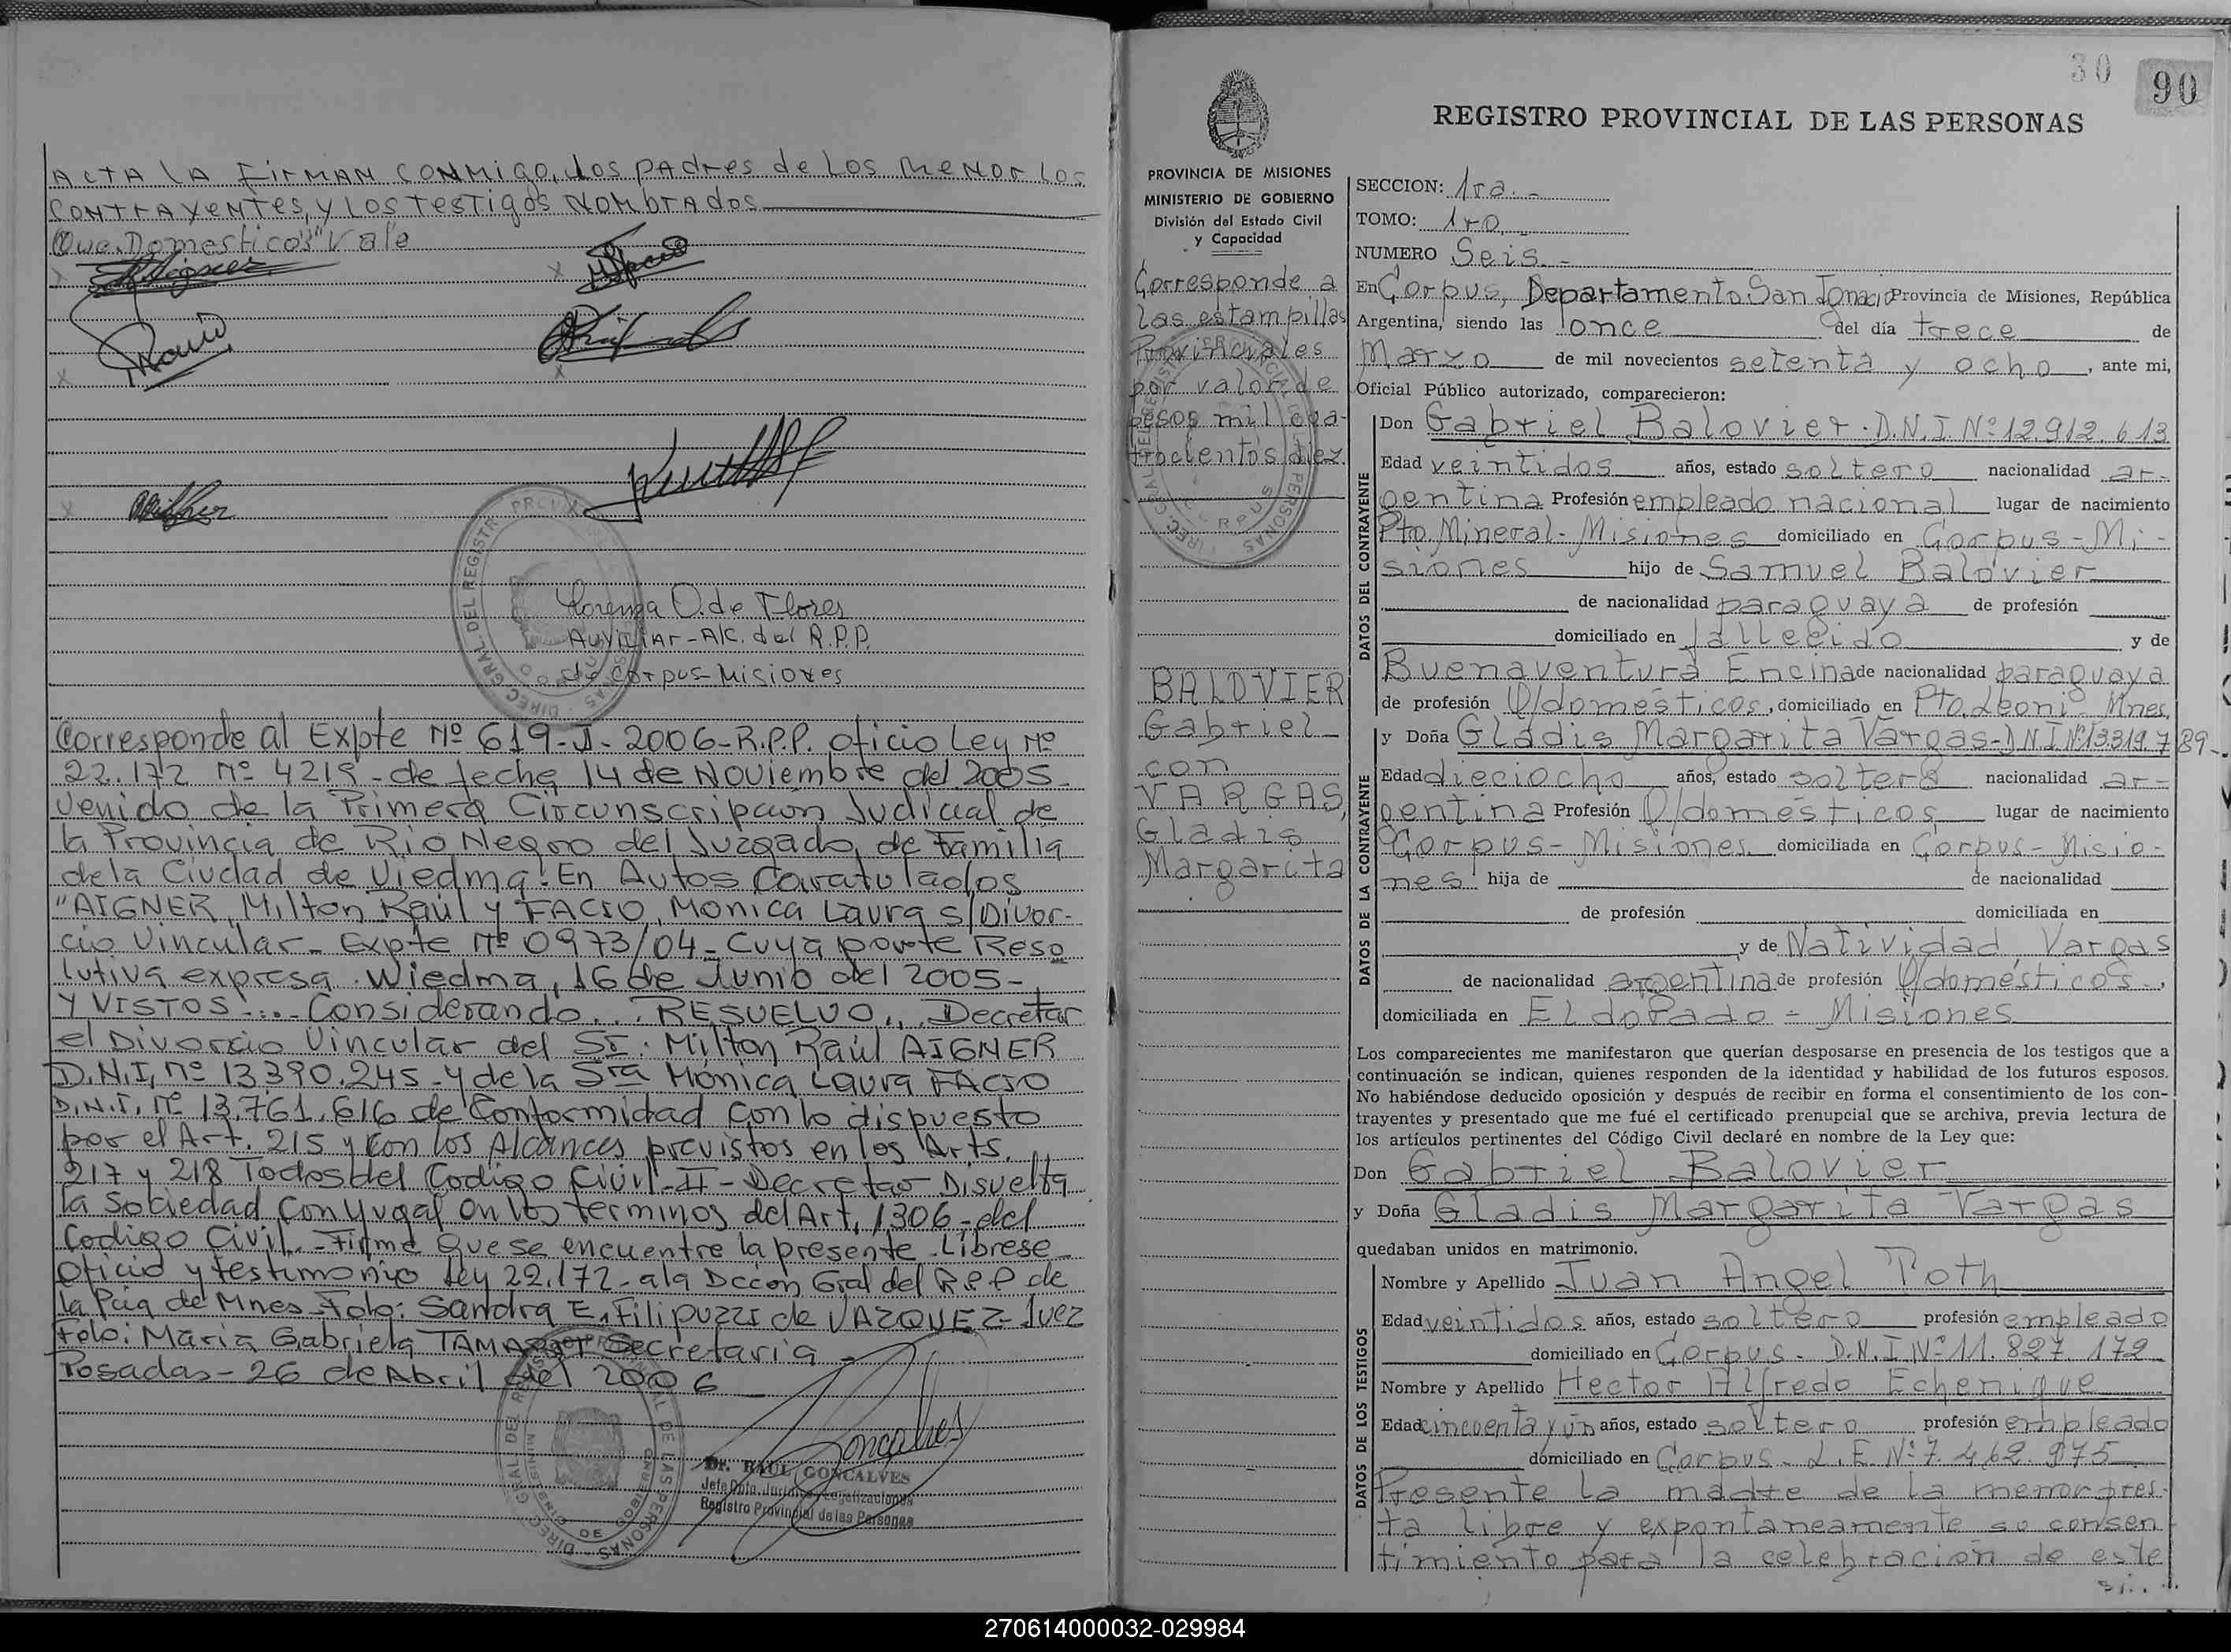 ACTA LA FIRMAN CONMIGO, LOS PADRES de LOS MENOR LOS
CONTRAYENTES, y LOS TESTIGOS NOMBRADOS
Que. Domesticos" Vale
Lorenza O. de Flores
Auxiliar - A/C. del R.P.P.
de Corpus - Misiones
Corresponde al Expte Nº 619-J-2006-R.P.P. oficio Ley Nº
22.172 Nº 4215 - de fecha 14 de Noviembre del 2005-
venido de la Primera Circunscripción Judicial de
la Provincia de Rio Negro del Juzgado, de Familia
de la Ciudad de Viedma. En Autos Caratulados
"AIGNER, Milton Raúl y FACIO, Monica Laura s/Divor-
cio Vincular - Expte Nº 0973/04 - Cuya parte Reso
lutiva expresa. Wiedma, 16 de Junio del 2005-
Y VISTOS.... Considerando... RESUELVO... Decretar
el Divorcio Vincular del Sr. Milton Raúl AIGNER
D.N.I, nº 13.390.245 - y de la Sra Mónica Laura FACIO
D.N.I. nº 13.761.616 de Conformidad con lo dispuesto
por el Art. 215 y con los Alcances previstos en los Arts.
217 y 218 Todos del Codigo Civil - II - Decretar Disuelta
la Sociedad Conyugal en los terminos del Art. 1306 - del
Codigo Civil. - Firme que se encuentre la presente Librese
oficio y testimonio Ley 22.172 - a la Dccón Gral del R.P.P de
la Pcia de Mnes. Fdo: Sandra E. Filipuzzi de VAZQUEZ - Juez
Fdo: María Gabriela Secretaria -
Posadas - 26 de Abril del 2006
Goncalves
Dr. RAUL GONCALVES
Jefe Dpto. Jurídico y Legalizaciones
Registro Provincial de las Personas
30
90
REGISTRO PROVINCIAL DE LAS PERSONAS
PROVINCIA DE MISIONES
MINISTERIO DE GOBIERNO
División del Estado Civil
y Capacidad
Corresponde a
las estampillas
Provinciales
por valor de
pesos mil cua-
trocientos diez.
BALOVIER
Gabriel
con
VARGAS,
Gladis
Margarita
SECCION: 1ra.-
TOMO: 1ro.-
NUMERO Seis.-
En Corpus, Departamento San Ignacio Provincia de Misiones, República
Argentina, siendo las once del día trece de
Marzo de mil novecientos setenta y ocho, ante mi,
Oficial Público autorizado, comparecieron:
DATOS DEL CONTRAYENTE
Don Gabriel Balovier. D.N.I. Nº 12.912.613
Edad veintidos años, estado soltero nacionalidad ar-
gentina Profesión empleado nacional lugar de nacimiento
Pto. Mineral - Misiones domiciliado en Corpus - Mi-
siones hijo de Samuel Balovier
de nacionalidad paraguaya de profesión
domiciliado en fallecido y de
Buenaventura Encina de nacionalidad paraguaya
de profesión Q/domésticos, domiciliado en Pto. Leoni - Mnes.
DATOS DE LA CONTRAYENTE
y Doña Gladis Margarita Vargas - D.N.I Nº 13.319.789-
Edad dieciocho años, estado soltera nacionalidad ar-
gentina Profesión Q/domésticos lugar de nacimiento
Corpus - Misiones domiciliada en Corpus - Misio-
nes hija de de nacionalidad
de profesión domiciliada en
y de Natividad Vargas
de nacionalidad argentina de profesión Q/domésticos.,
domiciliada en Eldorado - Misiones
Los comparecientes me manifestaron que querían desposarse en presencia de los testigos que a
continuación se indican, quienes responden de la identidad y habilidad de los futuros esposos.
No habiéndose deducido oposición y después de recibir en forma el consentimiento de los con-
trayentes y presentado que me fué el certificado prenupcial que se archiva, previa lectura de
los artículos pertinentes del Código Civil declaré en nombre de la Ley que:
Don Gabriel Balovier
y Doña Gladis Margarita Vargas
quedaban unidos en matrimonio.
DATOS DE LOS TESTIGOS
Nombre y Apellido Juan Angel Toth
Edad veintidos años, estado soltero profesión empleado
domiciliado en Corpus - D.N.I. Nº 11.827.172
Nombre y Apellido Hector Alfredo Echenique
Edad cincuenta y ún años, estado soltero profesión empleado
domiciliado en Corpus - L.E. Nº 7.462.975
Presente la madre de la menor pres-
ta libre y expontaneamente su consen
timiento para la celebración de este
si...
270614000032-029984